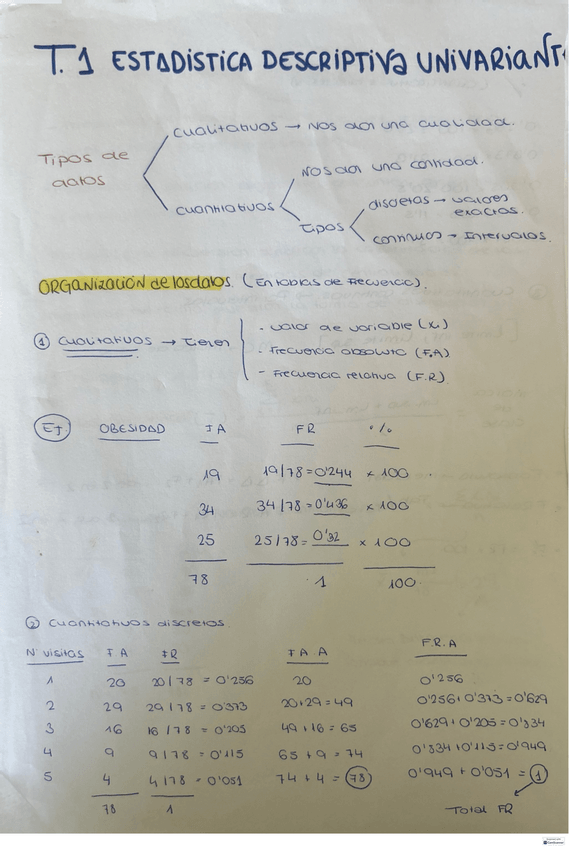 T.1 ESTADÍSTICA DESCRIPTIVA UNIVARIANT
Tipos de datos
cualitativos → Nos dan una cualidad.
cuantitativos
Nos dan una cantidad.
Tipos
discretos → valores exactos.
continuos → Intervalos.
ORGANIZACIÓN de los datos. (En tablas de frecuencia).
① Cualitativos → Tienen
- valor de variable (xi)
- Frecuencia absoluta (F.A)
- Frecuencia relativa (F.R)
Ej. OBESIDAD FA FR %
19 19/78 = 0'244 x 100
34 34/78 = 0'436 x 100
25 25/78 = 0'32 x 100
78 1 100
② Cuantitativos discretos.
Nº visitas FA FR FA.A F.R.A
1 20 20/78 = 0'256 20 0'256
2 29 29/78 = 0'373 20+29 = 49 0'256+0'373 = 0'629
3 16 16/78 = 0'205 49+16 = 65 0'629+0'205 = 0'834
4 9 9/78 = 0'115 65+9 = 74 0'834+0'115 = 0'949
5 4 4/78 = 0'051 74+4 = 78 0'949+0'051 = 1
78 1
Total FR